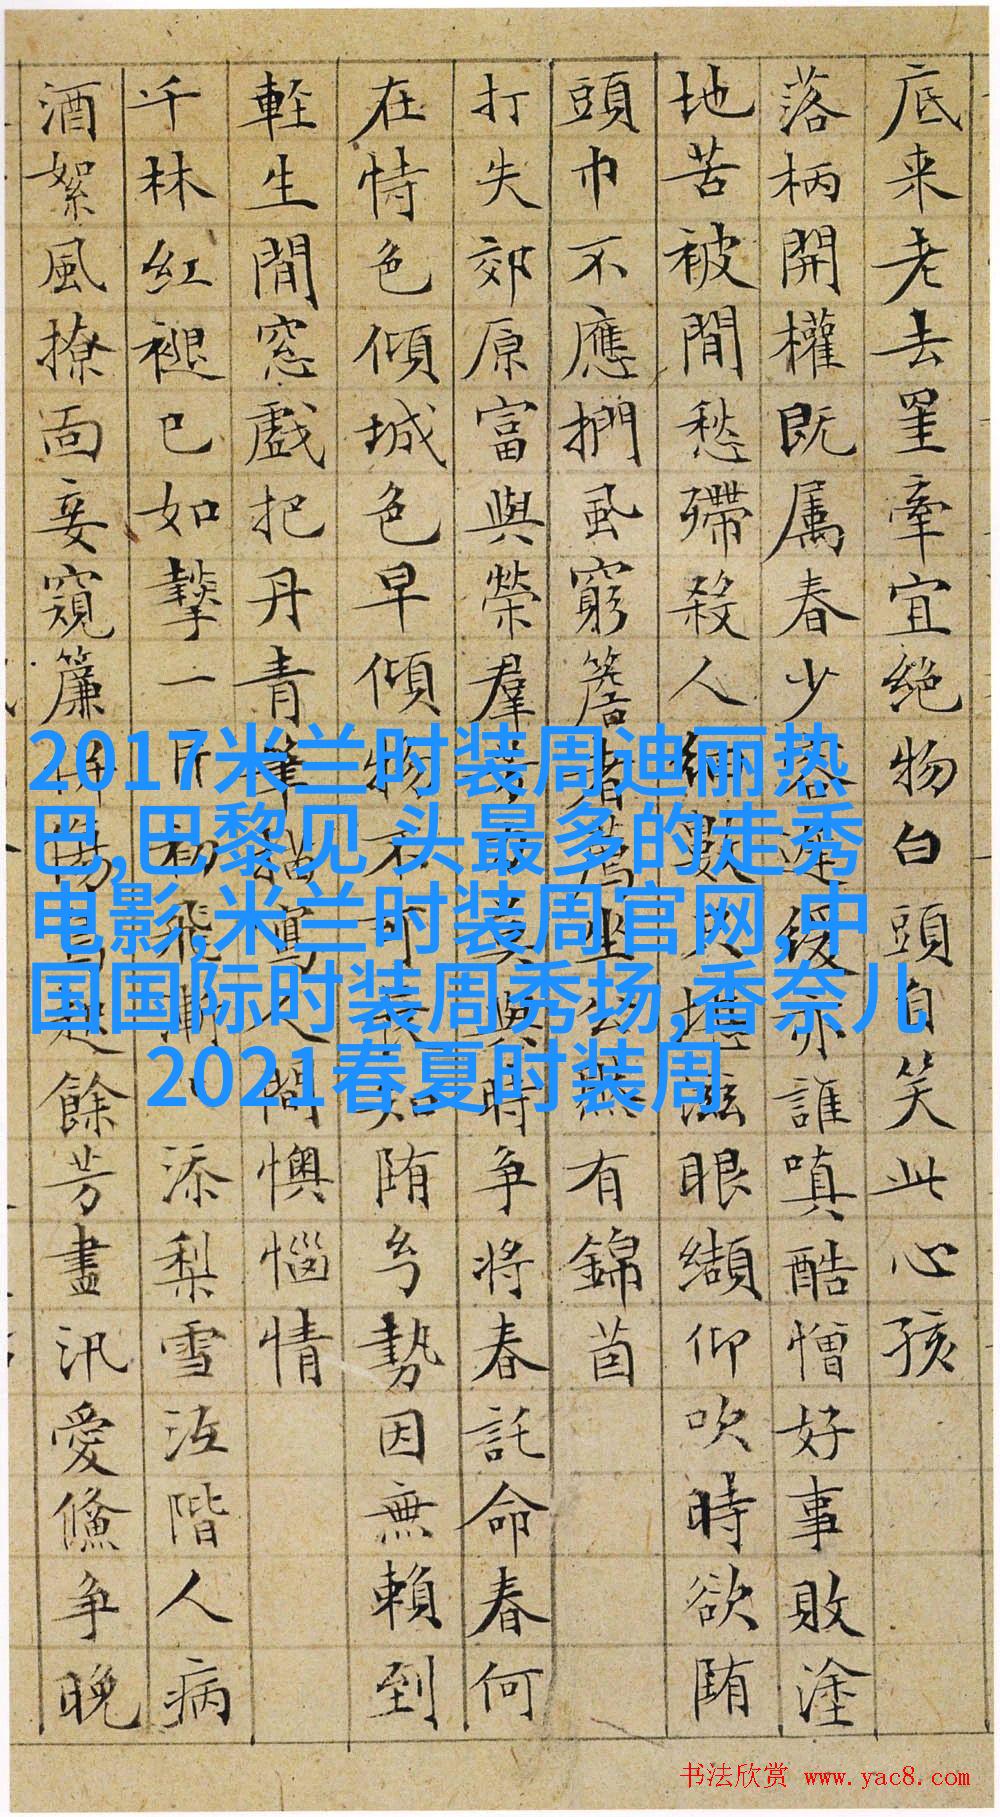 底来老去罣牵宜绝物白頭自笑此心孩
落柄開權既属春少容遅緩亦誰嗔酷憎好事敗塗
地苦被閒愁殢殺人細數
眼纈仰吹時欲陏
頭巾不應捫虱窮簷者萬坐公然有錦茵
打失郊原富與榮羣
與時争將春託命春何
在恃色傾城色早傾物不可長知陏兮勢因無賴到
輕生閒窓戲把丹青筆描寫人間懊惱情
千林紅褪已如㩗一片初飛漸
添梨雪泣階人病
酒絮風撩面妾窺簾
餘芳畫汛愛儵争晚
2017米兰时装周迪丽热
巴,巴黎见 头最多的走秀
电影,米兰时装周官网,中
国国际时装周秀场,香奈儿
2021春夏时装周
书法欣赏 www.yac8.com